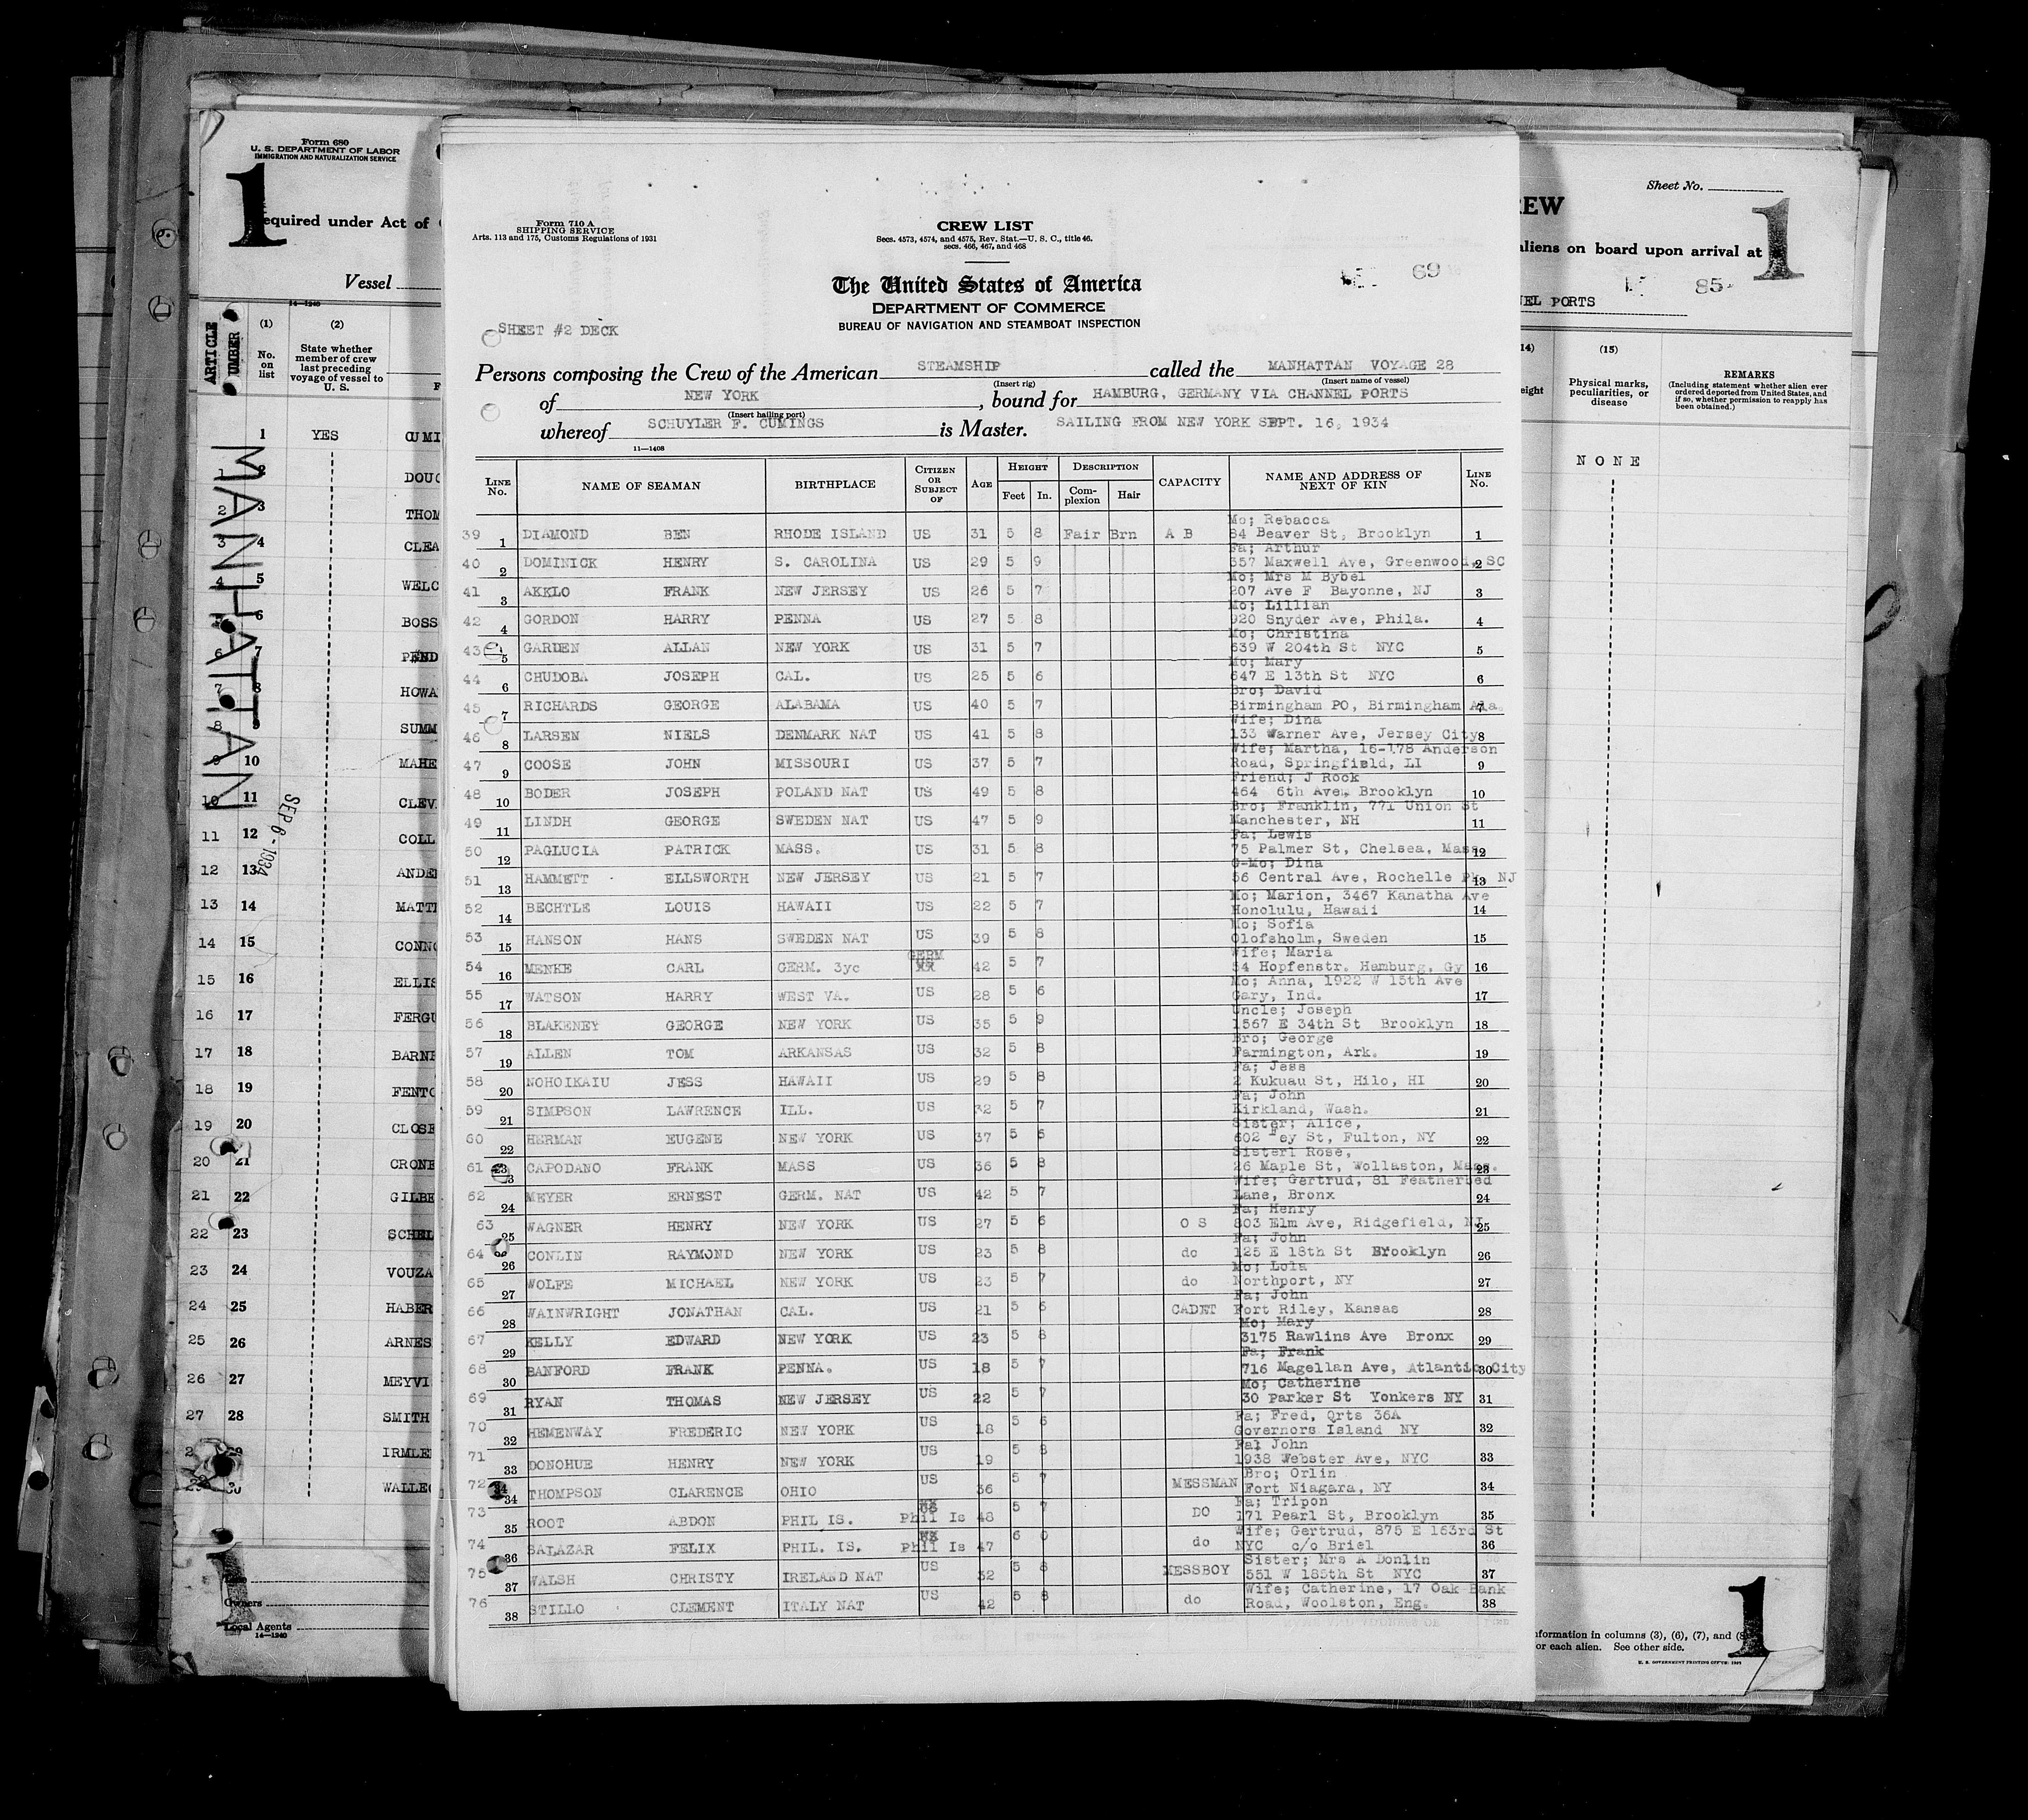 Form 680
U. S. DEPARTMENT OF LABOR
IMMIGRATION AND NATURALIZATION SERVICE
1
equired under Act of
Vessel
14—1240
ARTICLE NUMBER
(1)
No. on list
(2)
State whether member of crew last preceding voyage of vessel to U. S.
1 YES CUMI
1 2 DOUG
2 3 THOM
3 4 CLEA
4 5 WELC
6 BOSS
6 7 PEND
7 8 HOWA
8 SUMM
9 10 MAHE
10 11 CLEV
11 12 COLL
12 13 ANDE
13 14 MATT
14 15 CONN
15 16 ELLIS
16 17 FERGU
17 18 BARNE
18 19 FENTO
19 20 CLOSE
20 21 CRONE
21 22 GILBE
22 23 SCHEL
23 24 VOUZA
24 25 HABER
25 26 ARNES
26 27 MEYVI
27 28 SMITH
IRMLE
WALLE
MANHATTAN
SEP 6 - 1934
Owners
Local Agents
14—1240
Form 710 A
SHIPPING SERVICE
Arts. 113 and 175, Customs Regulations of 1931
CREW LIST
Secs. 4573, 4574, and 4575, Rev. Stat.—U. S. C., title 46,
secs. 466, 467, and 468
The United States of America
DEPARTMENT OF COMMERCE
BUREAU OF NAVIGATION AND STEAMBOAT INSPECTION
69
SHEET #2 DECK
Persons composing the Crew of the American STEAMSHIP called the MANHATTAN VOYAGE 28
(Insert rig) (Insert name of vessel)
of NEW YORK , bound for HAMBURG, GERMANY VIA CHANNEL PORTS
(Insert hailing port)
whereof SCHUYLER F. CUMINGS is Master. SAILING FROM NEW YORK SEPT. 16, 1934
11—1408
LINE No. NAME OF SEAMAN BIRTHPLACE CITIZEN OR SUBJECT OF AGE HEIGHT Feet In. DESCRIPTION Complexion Hair CAPACITY NAME AND ADDRESS OF NEXT OF KIN LINE No.
Mo; Rebacca
39 1 DIAMOND BEN RHODE ISLAND US 31 5 8 Fair Brn A B 84 Beaver St, Brooklyn 1
Fa; Arthur
40 2 DOMINICK HENRY S. CAROLINA US 29 5 9 557 Maxwell Ave, Greenwood, SC 2
Mo; Mrs M Bybel
41 3 AKKLO FRANK NEW JERSEY US 26 5 7 207 Ave F Bayonne, NJ 3
Mo; Lillian
42 4 GORDON HARRY PENNA US 27 5 8 920 Snyder Ave, Phila. 4
Mo; Christina
43 5 GARDEN ALLAN NEW YORK US 31 5 7 539 W 204th St NYC 5
Mo; Mary
44 6 CHUDOBA JOSEPH CAL. US 25 5 6 647 E 13th St NYC 6
Bro; David
45 7 RICHARDS GEORGE ALABAMA US 40 5 7 Birmingham PO, Birmingham Ala. 7
Wife; Dina
46 8 LARSEN NIELS DENMARK NAT US 41 5 8 133 Warner Ave, Jersey City 8
Wife; Martha, 16-178 Anderson
47 9 COOSE JOHN MISSOURI US 37 5 7 Road, Springfield, LI 9
Friend; J Rock
48 10 BODER JOSEPH POLAND NAT US 49 5 8 464 6th Ave, Brooklyn 10
Bro; Franklin, 771 Union St
49 11 LINDH GEORGE SWEDEN NAT US 47 5 9 Manchester, NH 11
Fa; Lewis
50 12 PAGLUCIA PATRICK MASS. US 31 5 8 75 Palmer St, Chelsea, Mass 12
G-Mo; Dina
51 13 HAMMETT ELLSWORTH NEW JERSEY US 21 5 7 56 Central Ave, Rochelle Pk, NJ 13
Mo; Marion, 3467 Kanatha Ave
52 14 BECHTLE LOUIS HAWAII US 22 5 7 Honolulu, Hawaii 14
Mo; Sofia
53 15 HANSON HANS SWEDEN NAT US 39 5 8 Olofsholm, Sweden 15
Wife; Maria
54 16 MENKE CARL GERM. 3yc GERM 42 5 7 54 Hopfenstr. Hamburg, Gy 16
Mo; Anna, 1922 W 15th Ave
55 17 WATSON HARRY WEST VA. US 28 5 6 Gary, Ind. 17
Uncle; Joseph
56 18 BLAKENEY GEORGE NEW YORK US 35 5 9 1567 E 34th St Brooklyn 18
Bro; George
57 19 ALLEN TOM ARKANSAS US 32 5 8 Farmington, Ark. 19
Fa; Jess
58 20 NOHOIKAIU JESS HAWAII US 29 5 8 2 Kukuau St, Hilo, HI 20
Fa; John
59 21 SIMPSON LAWRENCE ILL. US 32 5 7 Kirkland, Wash. 21
Sister; Alice,
60 22 HERMAN EUGENE NEW YORK US 37 5 6 602 ey St, Fulton, NY 22
Sisterl Rose,
61 23 CAPODANO FRANK MASS US 36 5 8 26 Maple St, Wollaston, Mass. 23
Wife; Gertrud, 81 Featherbed
62 24 MEYER ERNEST GERM. NAT US 42 5 7 Lane, Bronx 24
Fa; Henry
63 25 WAGNER HENRY NEW YORK US 27 5 6 O S 803 Elm Ave, Ridgefield, NJ 25
Fa; John
64 26 CONLIN RAYMOND NEW YORK US 23 5 8 do 125 E 18th St Brooklyn 26
Mo; Lola
65 27 WOLFE MICHAEL NEW YORK US 23 5 7 do Northport, NY 27
Fa; John
66 28 WAINWRIGHT JONATHAN CAL. US 21 5 6 CADET Fort Riley, Kansas 28
Mo; Mary
67 29 KELLY EDWARD NEW YORK US 23 5 8 3175 Rawlins Ave Bronx 29
Fa; Frank
68 30 BANFORD FRANK PENNA. US 18 5 7 716 Magellan Ave, Atlantic City 30
Mo; Catherine
69 31 RYAN THOMAS NEW JERSEY US 22 5 7 30 Parker St Yonkers NY 31
Fa; Fred, Qrts 36A
70 32 HEMENWAY FREDERIC NEW YORK US 18 5 6 Governors Island NY 32
Fa; John
71 33 DONOHUE HENRY NEW YORK US 19 5 8 1938 Webster Ave, NYC 33
Bro; Orlin
72 34 THOMPSON CLARENCE OHIO US 36 5 7 MESSMAN Fort Niagara, NY 34
Fa; Tripon
73 35 ROOT ABDON PHIL IS. Phil Is 48 5 7 DO 171 Pearl St, Brooklyn 35
Wife; Gertrud, 875 E 163rd St
74 36 SALAZAR FELIX PHIL. IS. Phil Is 47 6 0 do NYC c/o Briel 36
Sister; Mrs A Donlin
75 37 WALSH CHRISTY IRELAND NAT US 32 5 8 MESSBOY 551 W 185th St NYC 37
Wife; Catherine, 17 Oak Bank
76 38 STILLO CLEMENT ITALY NAT US 42 5 8 do Road, Woolston, Eng. 38
Sheet No.
REW
1
aliens on board upon arrival at
85
NEL PORTS
14)
eight
(15)
Physical marks, peculiarities, or disease
REMARKS
(Including statement whether alien ever ordered deported from United States, and if so, whether permission to reapply has been obtained.)
NONE
1
nformation in columns (3), (6), (7), and (8
or each alien. See other side.
U. S. GOVERNMENT PRINTING OFFICE